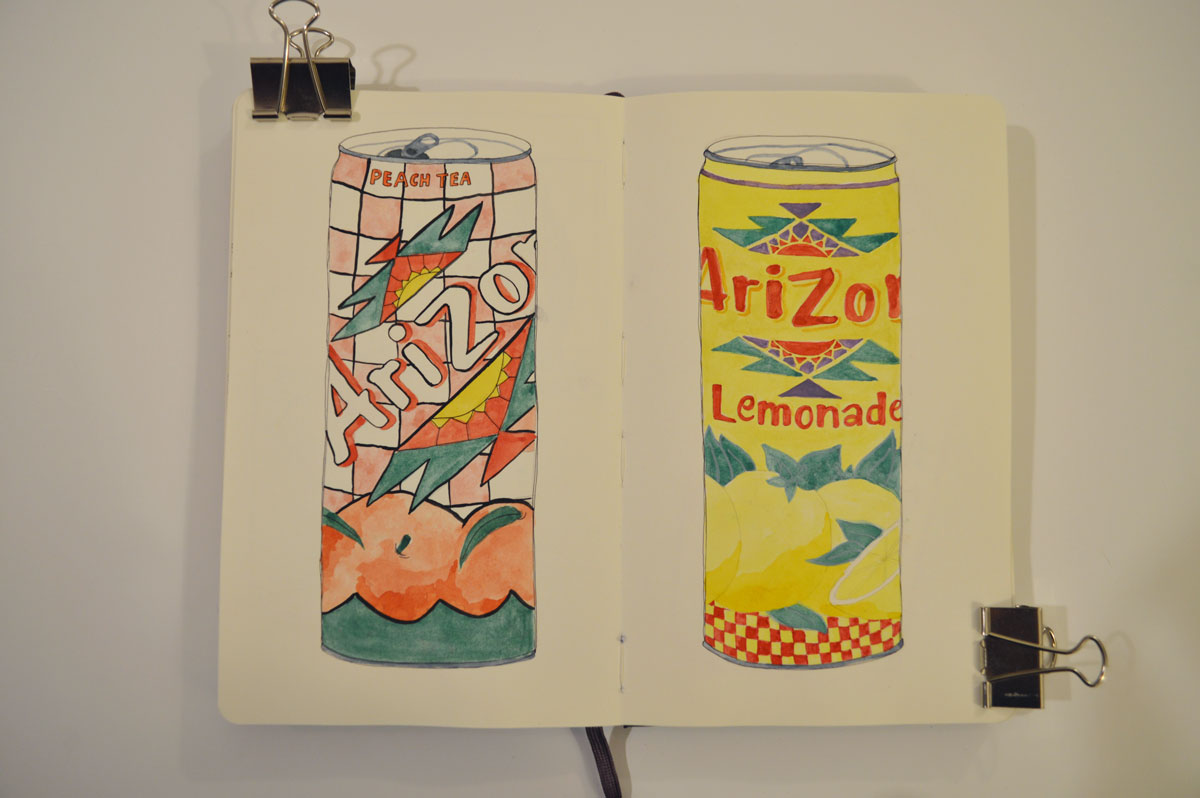 PEACH TEA
AriZor
AriZor
Lemonade